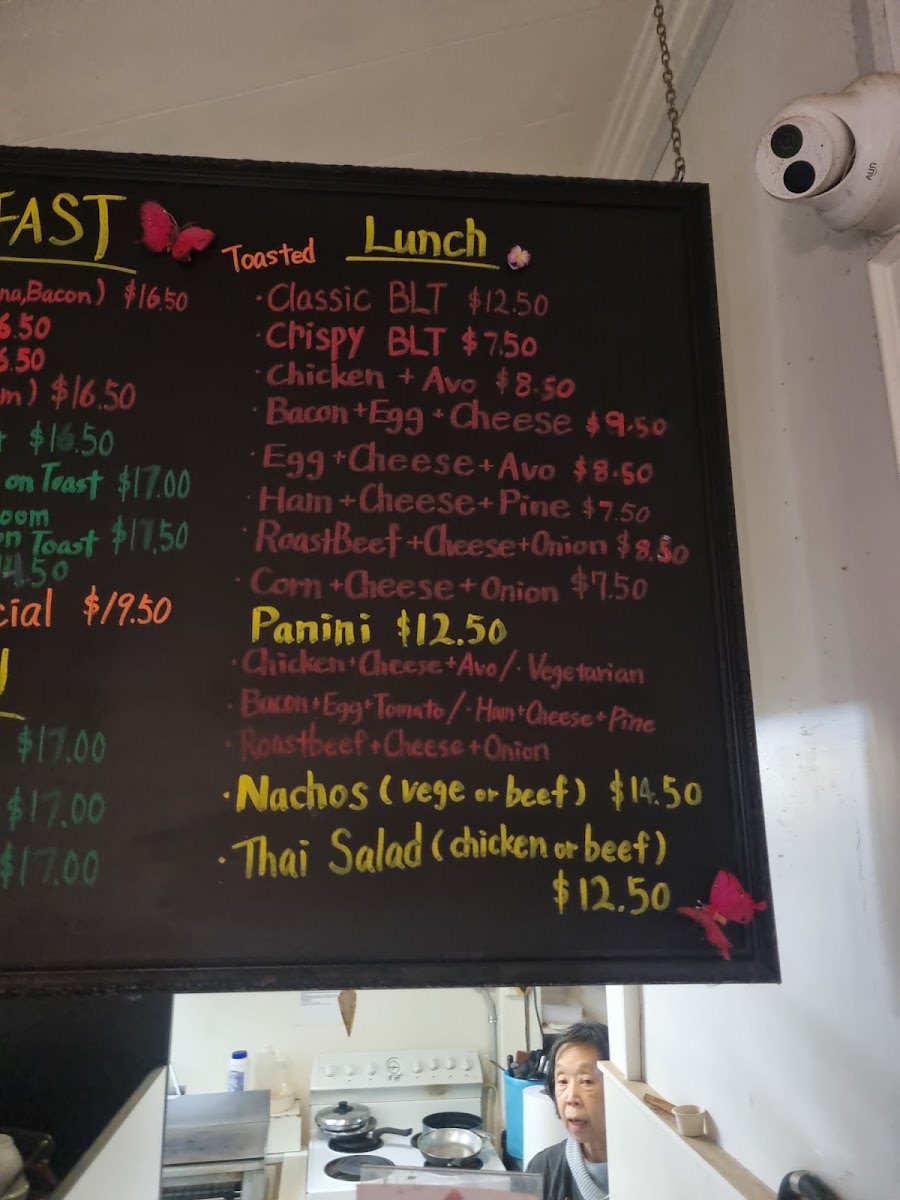 FAST
na,Bacon) $16.50
6.50
6.50
m) $16.50
$16.50
on Toast $17.00
oom
on Toast $17.50
14.50
cial $19.50
$17.00
$17.00
$17.00
Toasted Lunch
·Classic BLT $12.50
·Crispy BLT $7.50
·Chicken + Avo $8.50
·Bacon+Egg+Cheese $9.50
·Egg+Cheese+Avo $8.50
·Ham+Cheese+Pine $7.50
·RoastBeef+Cheese+Onion $8.50
·Corn+Cheese+Onion $7.50
Panini $12.50
·Chicken+Cheese+Avo/·Vegetarian
·Bacon+Egg+Tomato/·Ham+Cheese+Pine
·Roastbeef+Cheese+Onion
·Nachos (vege or beef) $14.50
·Thai Salad (chicken or beef)
$12.50
UNV